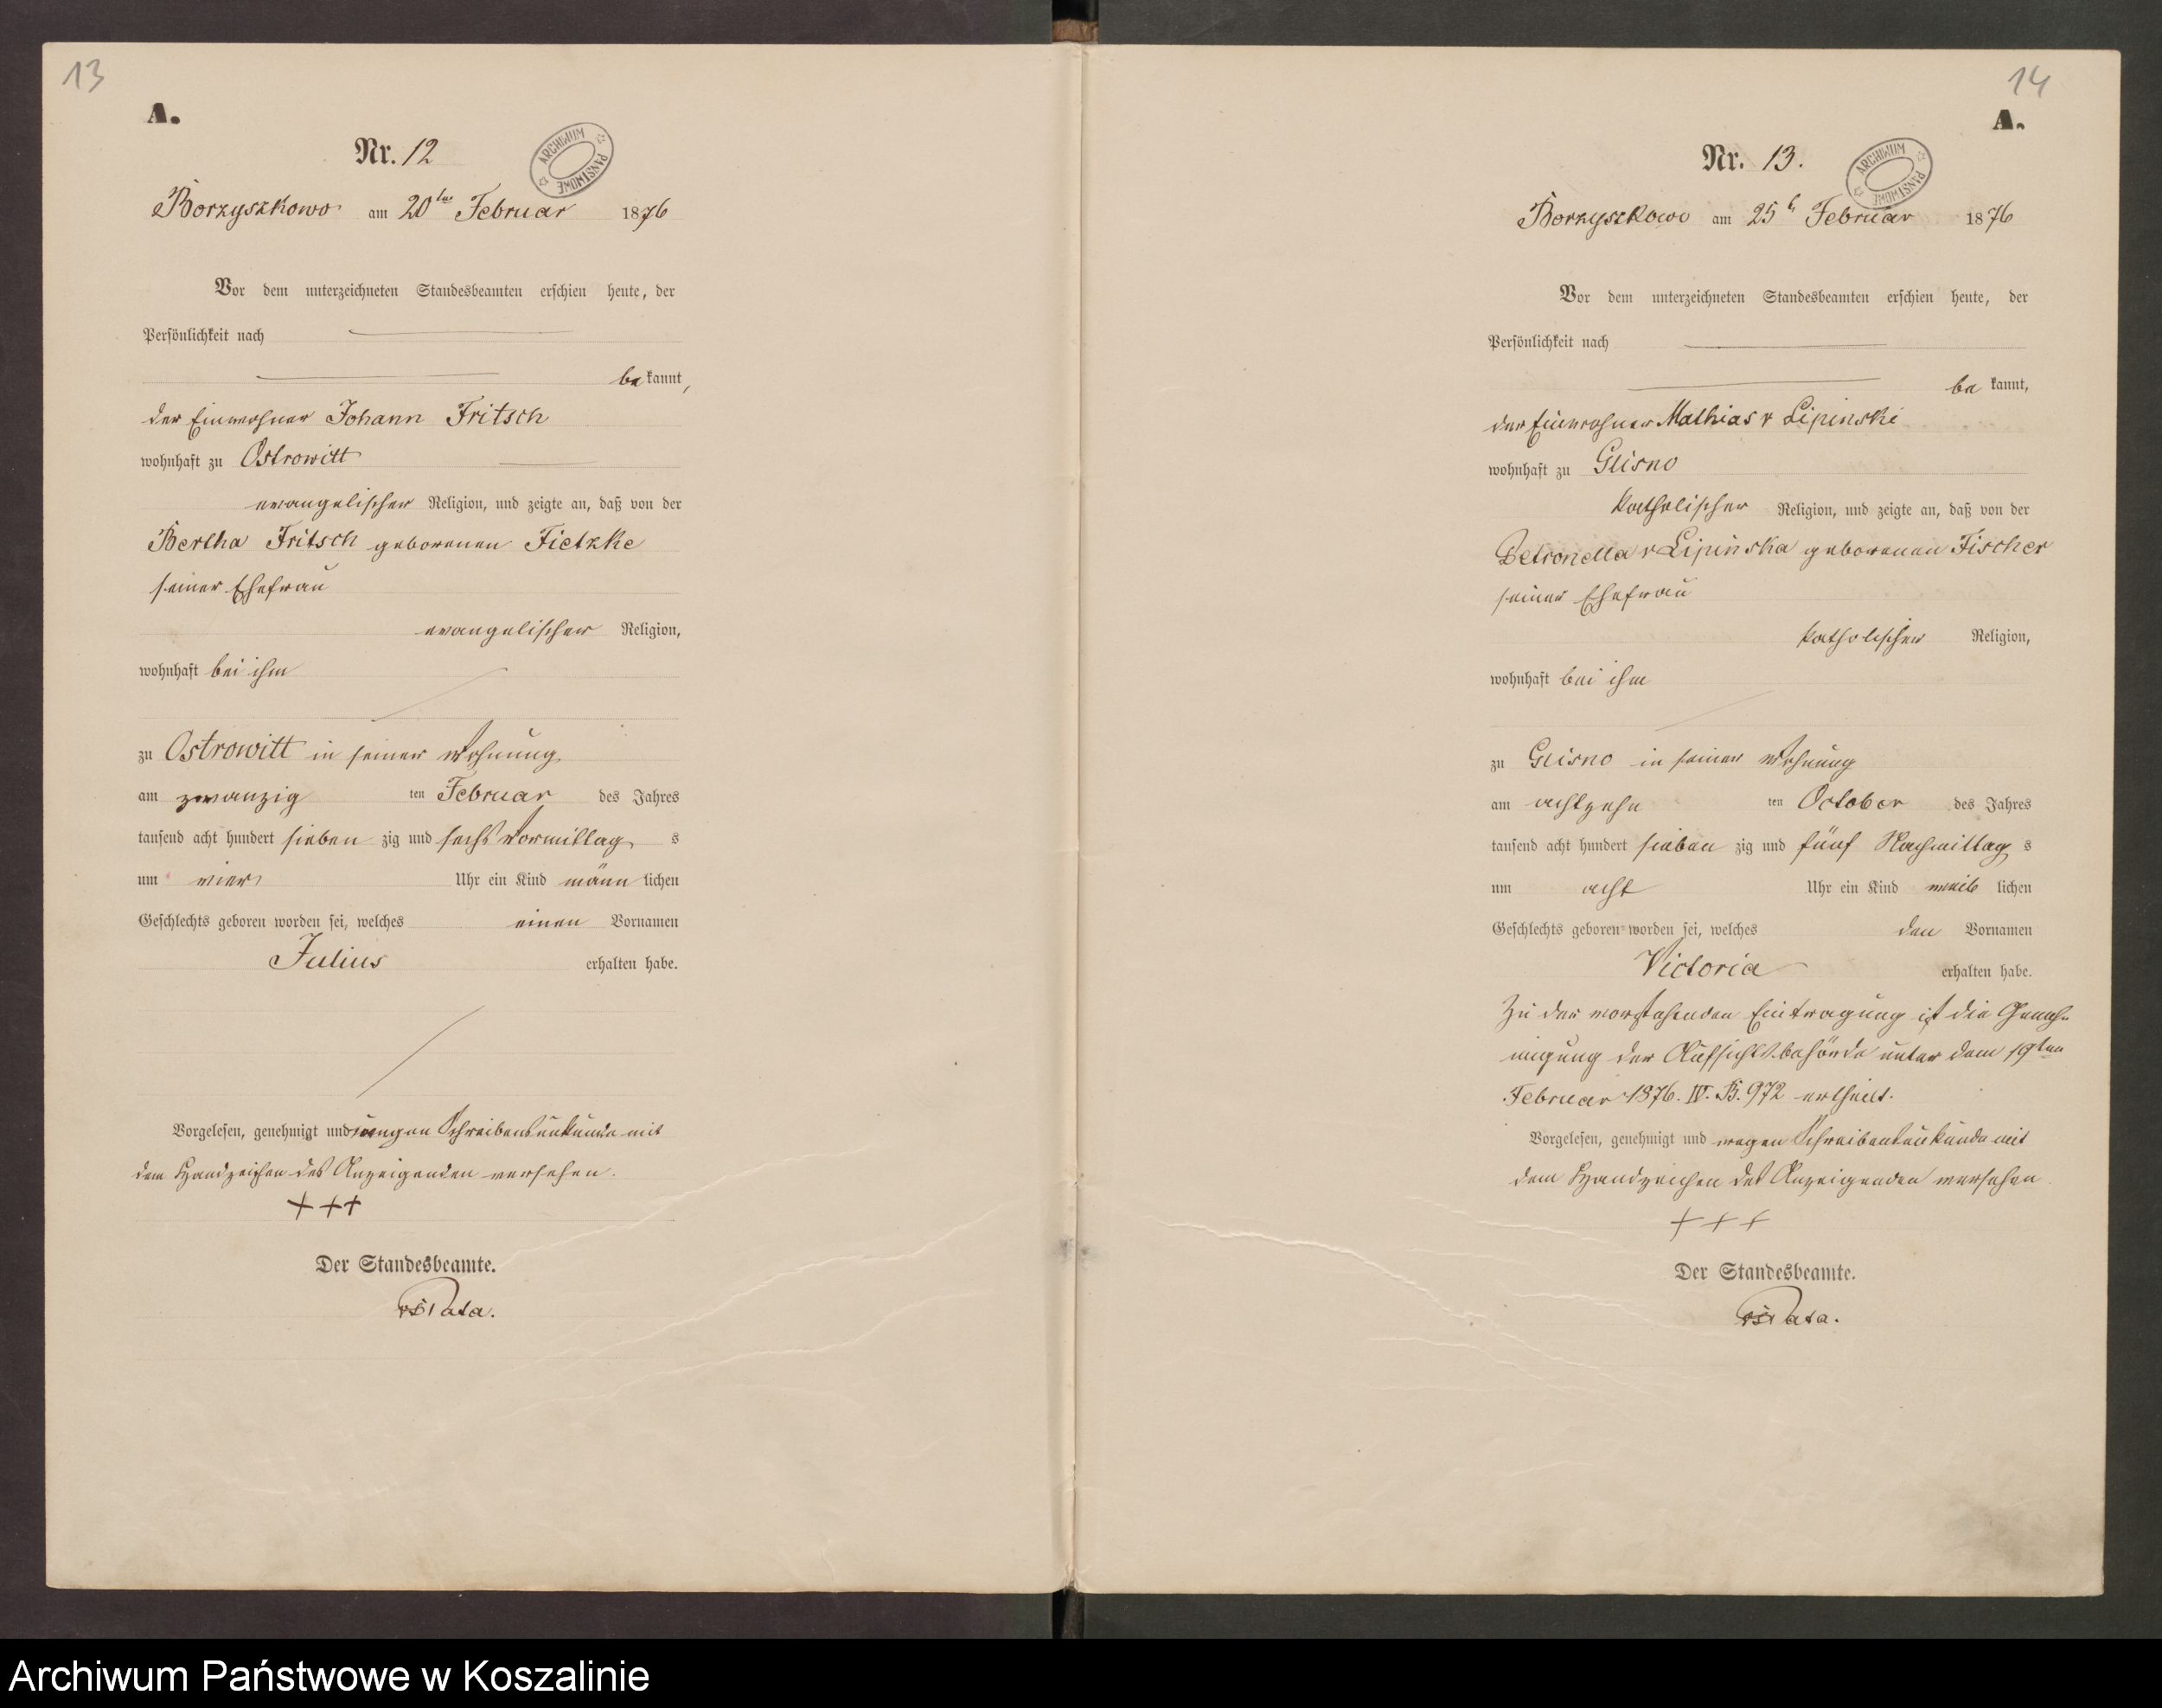 13
A.
Nr. 12
ARCHIWUM PAŃSTWOWE
Borzyszkowo am 20ten Februar 1876
Vor dem unterzeichneten Standesbeamten erschien heute, der
Persönlichkeit nach
bekannt,
der Einwohner Johann Fritsch
wohnhaft zu Ostrowitt
evangelischer Religion, und zeigte an, daß von der
Bertha Fritsch geborenen Fietzke
seiner Ehefrau
evangelischer Religion,
wohnhaft bei ihm
zu Ostrowitt in seiner Wohnung
am zwanzig ten Februar des Jahres
tausend acht hundert sieben zig und sechs Vormittag s
um vier Uhr ein Kind männ lichen
Geschlechts geboren worden sei, welches einen Vornamen
Julius erhalten habe.
Vorgelesen, genehmigt und wegen Schreibensunkunde mit
dem Handzeichen des Anzeigenden versehen.
+++
Der Standesbeamte.
14
A.
Nr. 13.
ARCHIWUM PAŃSTWOWE
Borzyszkowo am 25t Februar 1876
Vor dem unterzeichneten Standesbeamten erschien heute, der
Persönlichkeit nach
be kannt,
der Einwohner Mathias v Lipinski
wohnhaft zu Glisno
katholischer Religion, und zeigte an, daß von der
Petronella v Lipinska geborenen Fischer
seiner Ehefrau
katholischer Religion,
wohnhaft bei ihm
zu Glisno in seiner Wohnung
am achtzehn ten October des Jahres
tausend acht hundert sieben zig und fünf Nachmittag s
um acht Uhr ein Kind weib lichen
Geschlechts geboren worden sei, welches den Vornamen
Victoria erhalten habe.
Zu der vorstehenden Eintragung ist die Geneh-
migung der Aufsichtsbehörde unter dem 19ten
Februar 1876. IV. B. 972 ertheilt.
Vorgelesen, genehmigt und wegen Schreibensunkunde mit
dem Handzeichen des Anzeigenden versehen
+++
Der Standesbeamte.
Archiwum Państwowe w Koszalinie